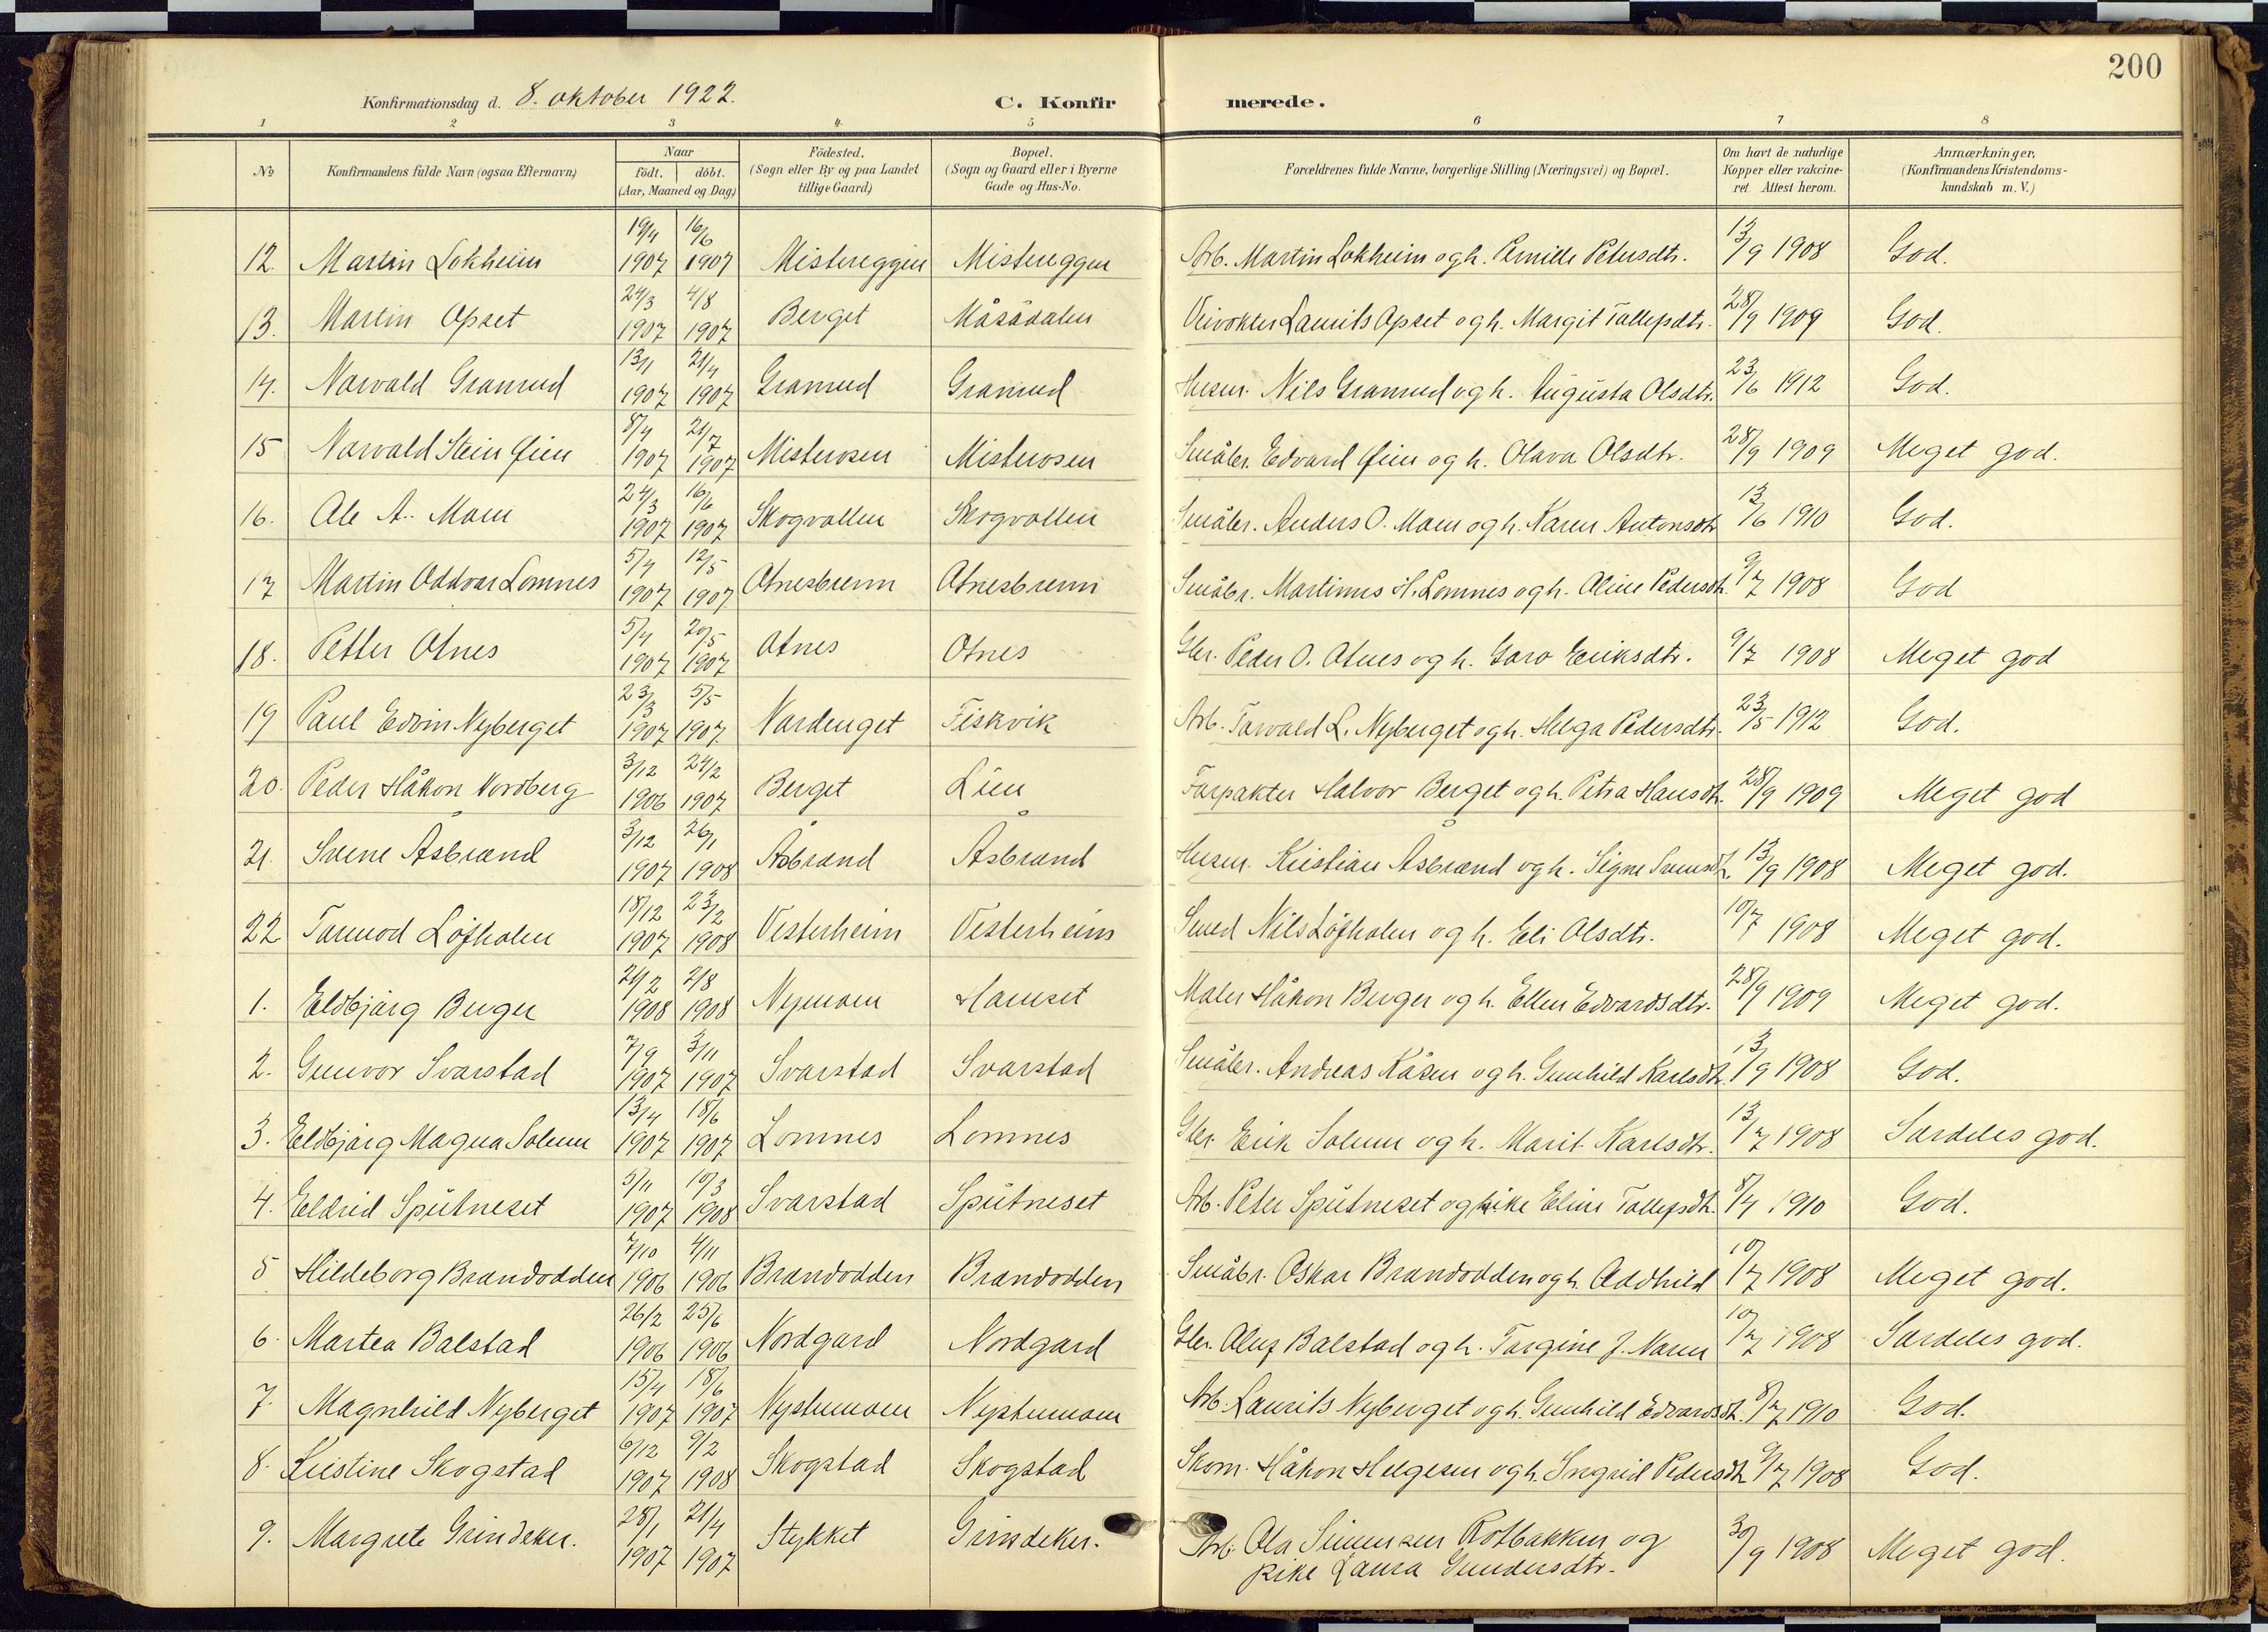 200
Konfirmationsdag d. 8. oktober 1922.
C. Konfirmerede.
1 2 3 4 5 6 7 8
No
Konfirmandens fulde Navn (ogsaa Efternavn)
Naar
födt. döbt.
(Aar, Maaned og Dag)
Födested.
(Sogn eller By og paa Landet
tillige Gaard)
Bopæl.
(Sogn og Gaard eller i Byerne
Gade og Hus-No.
Forældrenes fulde Navne, borgerlige Stilling (Næringsvei) og Bopæl.
Om havt de naturlige
Kopper eller vakcine-
ret. Attest herom.
Anmærkninger,
(Konfirmandens Kristendoms-
kundskab m. V.)
12. Martin Lokheim 19/4 1907 16/6 1907 Mistereggen Mistereggen Arb. Martin Lokheim og h. Pernille Petersdtr. 13/9 1908 God.
13. Martin Opset 24/3 1907 4/8 1907 Berget Måsådalen Veivokter Laurits Opset og h. Margit Tollefsdtr. 28/9 1909 God.
14. Narvald Granrud 13/1 1907 21/4 1907 Granrud Granrud Husm. Nils Granrud og h. Augusta Olsdtr. 23/6 1912 God.
15 Narvald Stein Øien 8/4 1907 21/7 1907 Misterosen Misterosen Småbr. Edvard Øien og h. Olava Olsdtr. 28/9 1909 Meget god.
16. Ole A. Moen 24/3 1907 16/6 1907 Skogvollen Skogvollen Småbr. Anders O. Moen og h. Karen Antonsdtr 13/6 1910 God.
17 Martin Oddvar Lomnes 5/4 1907 12/5 1907 Otnesbrenn Otnesbrenn Småbr. Martinus H. Lomnes og h. Oline Pedersdtr. 9/7 1908 God
18. Petter Otnes 5/4 1907 20/5 1907 Otnes Otnes Gbr. Peder O. Otnes og h. Goro Eriksdtr. 9/7 1908 Meget god
19 Paul Edvin Nyberget 23/3 1907 5/5 1907 Vardenget Fiskvik Arb. Torvald L. Nyberget og h. Helga Pedersdtr. 23/5 1912 God.
20. Peder Håkon Nordberg 3/12 1906 24/2 1907 Berget Lien Forpakter Halvor Berget og h. Petra Hansdtr. 28/9 1909 Meget god
21. Svene Åsbrænd 3/12 1907 26/1 1908 Åsbrænd Åsbrænd Husm. Kristian Åsbrænd og h. Signe Svensdtr. 13/9 1908 Meget god.
22. Tormod Löfholen 18/12 1907 23/2 1908 Vesterheim Vesterheim Smed Nils Löfholen og h. Eli Olsdtr. 10/7 1908 Meget god.
1. Eldbjörg Berger 21/2 1908 2/8 1908 Nymoen Hamset Maler Håkon Berger og h. Ellen Edvardsdtr. 28/9 1909 Meget god.
2. Gunvor Svarstad 7/9 1907 3/11 1907 Svarstad Svarstad Småbr. Andreas Kåsen og h. Gunhild Karlsdtr. 13/9 1908 God.
3. Eldbjörg Magna Solum 13/4 1907 18/6 1907 Lomnes Lomnes Gbr. Erik Solum og h. Marit Karlsdtr. 13/7 1908 Særdeles god.
4. Eldrid Sputneset 5/11 1907 19/3 1908 Svarstad Sputneset Arb. Peter Sputneset og pike Eline Tollefsdtr. 8/7 1910 God.
5 Hildeborg Brandodden 7/10 1906 4/11 1906 Brandodden Brandodden Småbr. Oskar Brandodden og h. Oddhild 10/7 1908 Meget god.
6. Martea Balstad 26/2 1906 25/6 1906 Nordgard Nordgard Gbr. Oluf Balstad og h. Torgine J. Næren 10/7 1908 Særdeles god.
7. Magnhild Nyberget 15/4 1907 18/6 1907 Nystumoen Nystumoen Arb. Laurits Nyberget og h. Gunhild Edvardsdtr. 8/7 1910 God.
8. Kristine Skogstad 6/12 1907 9/2 1908 Skogstad Skogstad Skom. Håkon Helgesen og h. Ingrid Pedersdtr 9/7 1908 God.
9. Margrete Grindeker. 28/1 1907 21/4 1907 Stykket Grindeker. Arb. Ola Simensen Rotbakken og 30/9 1908 Meget god.
pike Laura Gundersdtr.